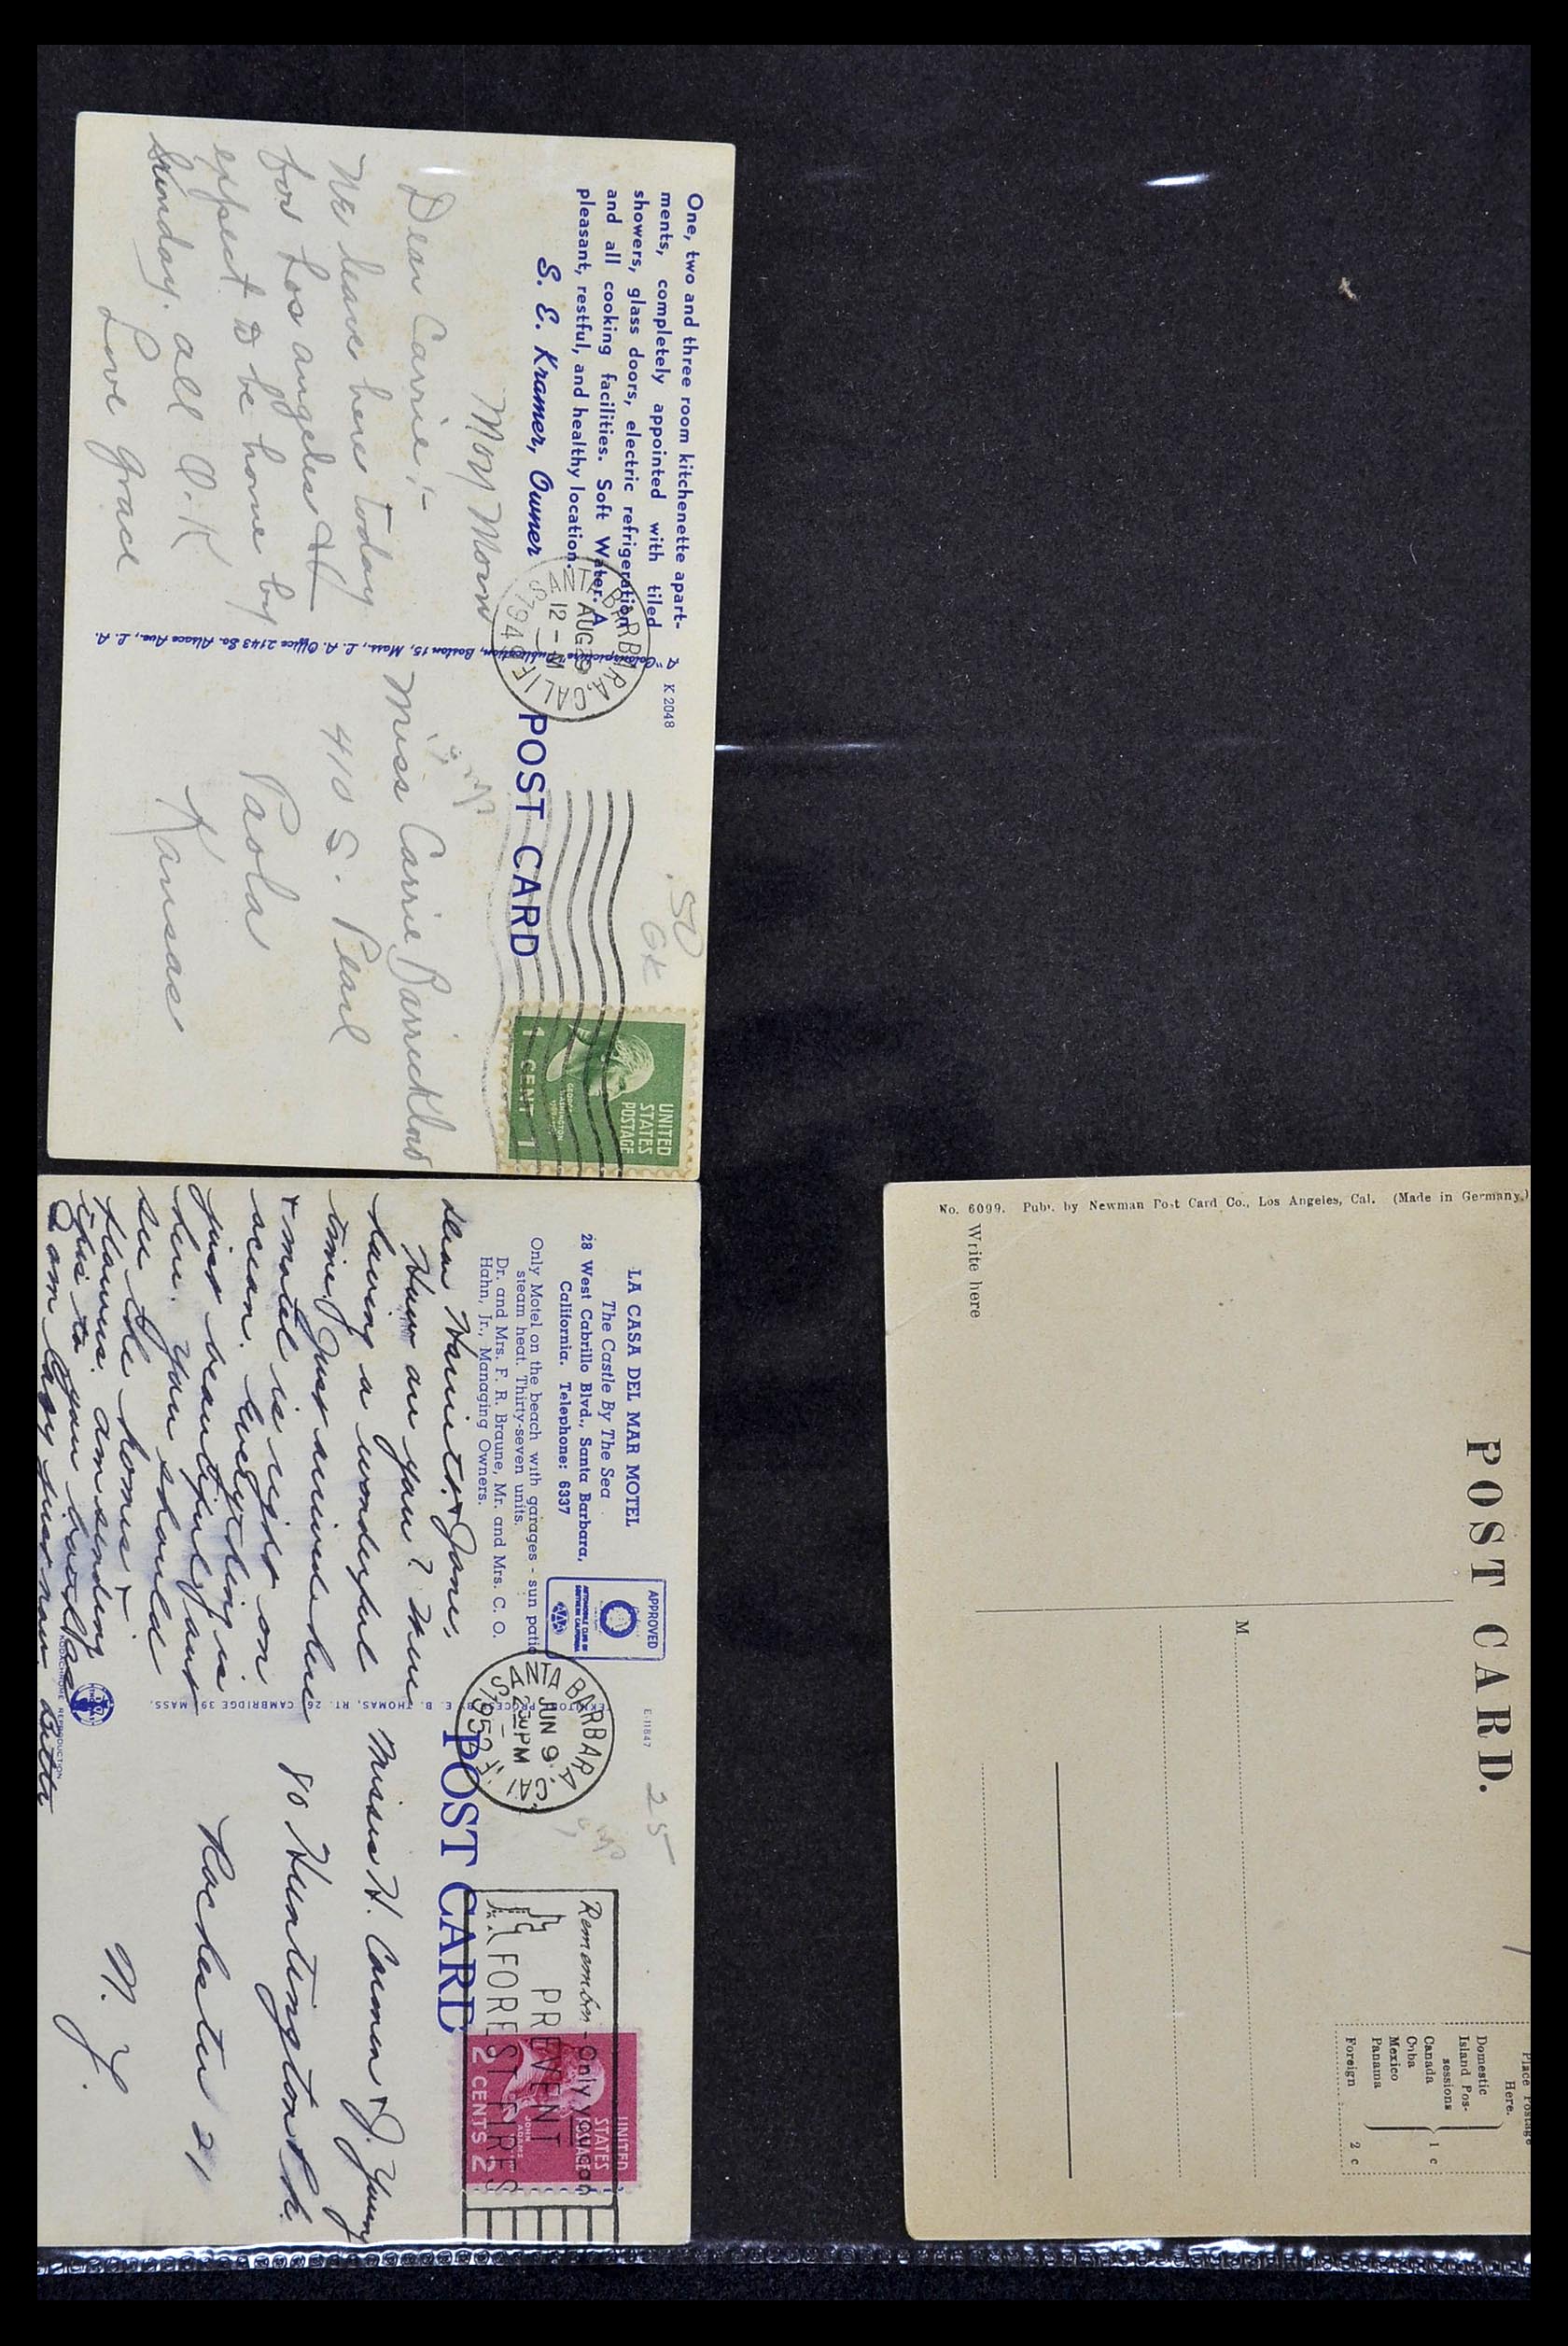 One, two and three room kitchenette apart-
ments, completely appointed with tiled
showers, glass doors, electric refrigeration
and all cooking facilities. Soft Water. A
pleasant, restful, and healthy location.
S. E. Kramer, Owner
Mon Morn
Dear Carrie;-
We leave here today
for Los Angeles &
expect to be home by
Sunday. all O.K
Love Grace
A "Colorpicture" Publication, Boston 15, Mass., L. A. Office 2143 So. Alsace Ave., L. A.
K 2048
SANTA BARBARA, CALIF.
AUG 29
12 - M
1949
POST CARD
.50
GK
UNITED
STATES
POSTAGE
GEORGE
WASHINGTON
1 CENT 1
Miss Carrie Barricklow
410 S. Pearl
Paola
Kansas
LA CASA DEL MAR MOTEL
The Castle By The Sea
28 West Cabrillo Blvd., Santa Barbara,
California. Telephone: 6337
Only Motel on the beach with garages - sun patio
steam heat. Thirty-seven units.
Dr. and Mrs. F. R. Braune, Mr. and Mrs. C. O.
Hahn, Jr., Managing Owners.
APPROVED
AUTOMOBILE CLUB OF
SOUTHERN CALIFORNIA
AAA
Dear Harriet & Jane,
How are you?
having a wonderful
time. Just arrived here
& motel is right on
ocean. Everything is
just beautiful
here. You should
see the homes &
flowers. am sending
this to your
I am lazy just now.
E. B. THOMAS, RT. 26, CAMBRIDGE 39, MASS.
KODACHROME REPRODUCTION
E-11847
SANTA BARBARA, CALIF.
JUN 9
2 30 PM
1952
POST CARD
25
Remember - Only you can
PREVENT
FOREST FIRES
UNITED
STATES
POSTAGE
JOHN
ADAMS
2 CENTS 2
Misses H. Carmen & J. Young
80 Huntington Pk.
Rochester 21
N. Y.
No. 6099. Pub. by Newman Post Card Co., Los Angeles, Cal. (Made in Germany.)
Write here
POST CARD.
M
Place Postage
Here.
Domestic
Island Pos-
sessions
Canada
Cuba
Mexico
Panama
1 c
Foreign 2 c